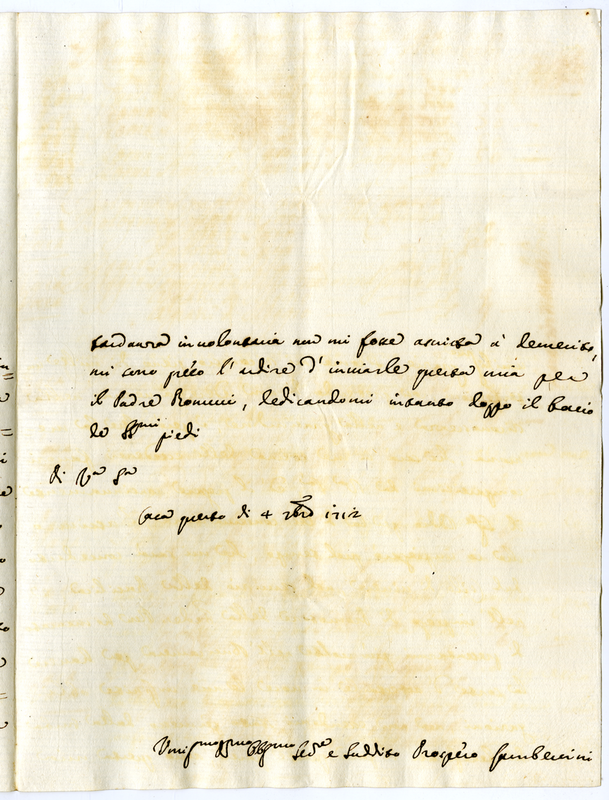 tardanza involontaria non mi fosse ascritta à demerito,
mi sono preso l'ardire d'inviarle questa mia per
il Padre Romini, dedicandomi intanto doppo il bacio
de SSmi piedi
di Va Sa
Casa questo di 4 1712
Umilmo Obbmo e Suddito Prospero Gamberini